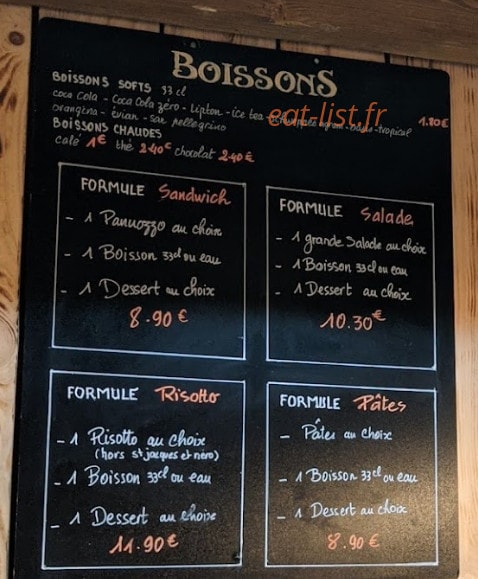 BOISSONS
BOISSONS SOFTS 33 cl
coca Cola - Coca Cola zéro - Lipton - ice tea - tropical 1.80 €
eat-list.fr
orangina - évian - san pellegrino
BOISSONS CHAUDES
café 1€ thé 2.40€ chocolat 2.40€
FORMULE Sandwich
- 1 Panuozzo au choix
- 1 Boisson 33cl ou eau
- 1 Dessert au choix
8.90 €
FORMULE Salade
- 1 grande Salade au choix
- 1 Boisson 33cl ou eau
- 1 Dessert au choix
10.30€
FORMULE Risotto
- 1 Risotto au choix
(hors st jacques et néro)
- 1 Boisson 33cl ou eau
- 1 Dessert au choix
11.90 €
FORMULE Pâtes
- Pâtes au choix
- 1 Boisson 33cl ou eau
- 1 Dessert au choix
8.90 €